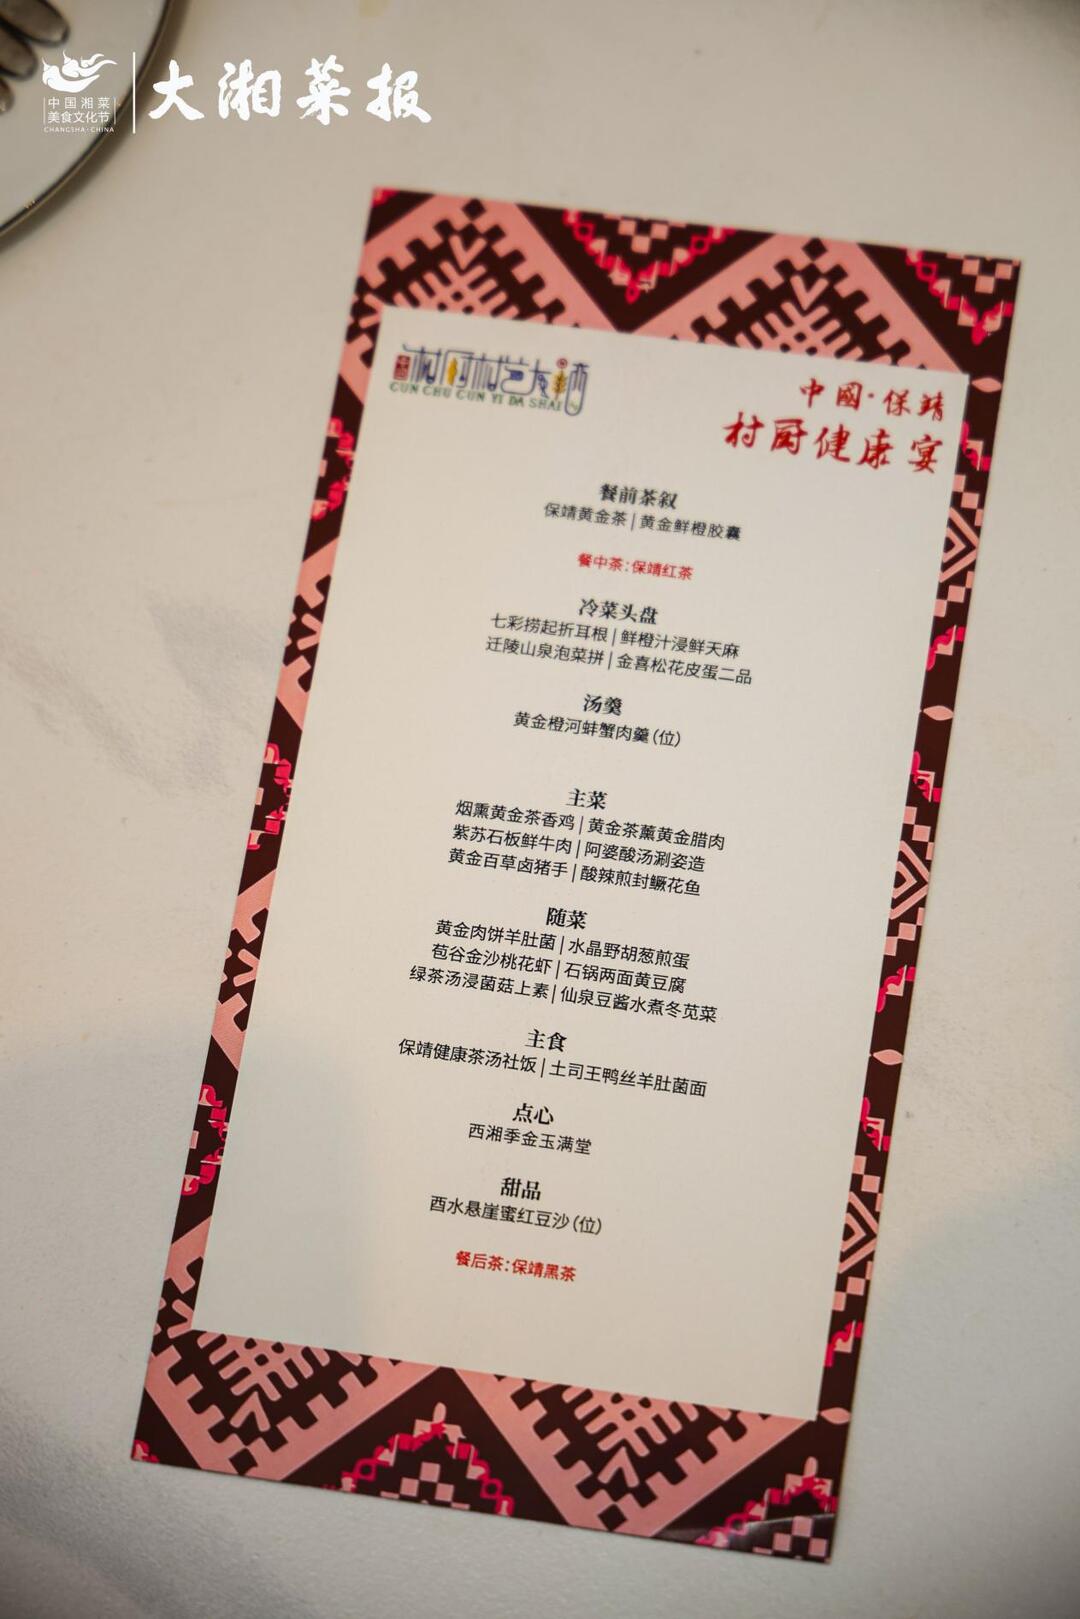 中国湘菜
美食文化节
CHANGSHA·CHINA
大湘菜报
村厨村艺大
CUN CHU CUN YI DA SHAI
中國·保靖
村厨健康宴
餐前茶叙
保靖黄金茶|黄金鲜橙胶囊
餐中茶:保靖红茶
冷菜头盘
七彩捞起折耳根|鲜橙汁浸鲜天麻
迁陵山泉泡菜拼|金喜松花皮蛋二品
汤羹
黄金橙河蚌蟹肉羹(位)
主菜
烟熏黄金茶香鸡|黄金茶薰黄金腊肉
紫苏石板鲜牛肉|阿婆酸汤涮姿造
黄金百草卤猪手|酸辣煎封鳜花鱼
随菜
黄金肉饼羊肚菌|水晶野胡葱煎蛋
苞谷金沙桃花虾|石锅两面黄豆腐
绿茶汤浸菌菇上素|仙泉豆酱水煮冬苋菜
主食
保靖健康茶汤社饭|土司王鸭丝羊肚菌面
点心
西湘季金玉满堂
甜品
酉水悬崖蜜红豆沙(位)
餐后茶:保靖黑茶